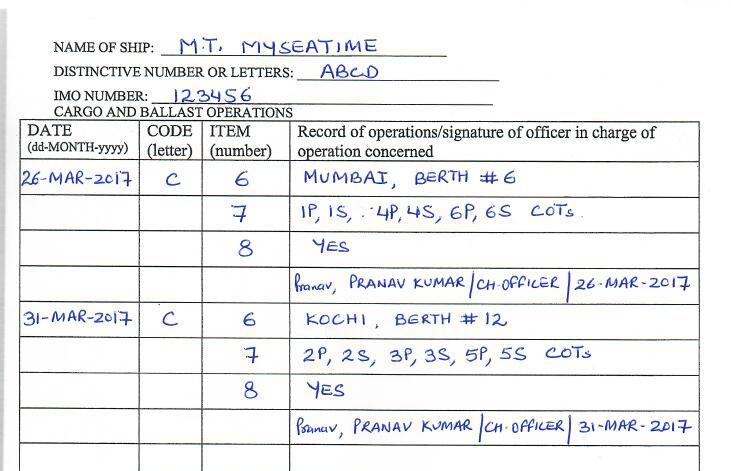 NAME OF SHIP: M.T. MYSEATIME
DISTINCTIVE NUMBER OR LETTERS: ABCD
IMO NUMBER: 123456
CARGO AND BALLAST OPERATIONS
DATE (dd-MONTH-yyyy) CODE (letter) ITEM (number) Record of operations/signature of officer in charge of operation concerned
26-MAR-2017 C 6 MUMBAI, BERTH #6
7 1P, 1S, 4P, 4S, 6P, 6S COTs.
8 YES
Pranav, PRANAV KUMAR/CH.OFFICER/26-MAR-2017
31-MAR-2017 C 6 KOCHI, BERTH #12
7 2P, 2S, 3P, 3S, 5P, 5S COTs
8 YES
Pranav, PRANAV KUMAR/CH.OFFICER/31-MAR-2017